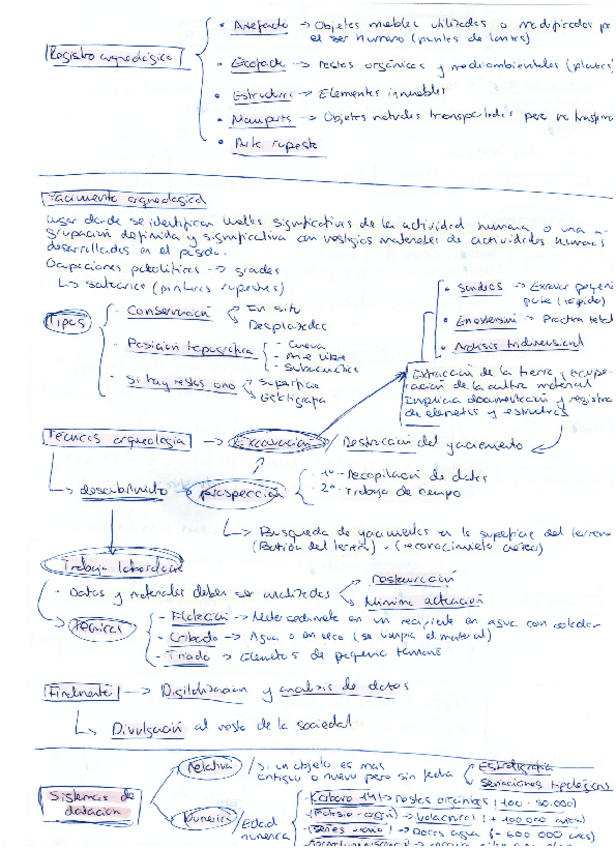 Registro arqueológico
• Artefacto → Objetos muebles utilizados o modificados
el ser humano (puntas de lanza)
• Ecofacto → restos orgánicos y medioambientales (plantas
• Estructura → Elementos inmuebles
• Manuports → Objetos naturales transportados pero no
• Arte rupestre
Yacimiento arqueológico
lugar donde se identifican huellas significativas de la actividad humana, o una a-
grupación definida y significativa con vestigios materiales de actividades humanas
desarrolladas en el pasado.
Ocupaciones paleolíticas →
(pinturas rupestres)
Tipos
- Conservación
In situ
Desplazados
- Posición topográfica
- Cueva
- Aire libre
- Subacuática
- Si hay restos o no
Superficie
Estratigrafía
• Sondeos → Excavar
(rápido)
• En extensión →
• Análisis tridimensional
Extracción de la tierra y recupe-
ración de la cultura material
Implica documentación y registro
de elementos y estructuras
Técnicas arqueología → Excavación / Destrucción del yacimiento
↳ descubrimiento → prospección
1º- Recopilación de datos
2º- Trabajo de campo
↳ Búsqueda de yacimientos en la superficie del terreno
(Batida del terreno) - (reconocimiento aéreo)
Trabajo laboratorio
• Datos y materiales deben ser analizados
Restauración
Mínima actuación
Técnicas
- Flotación → Mete sedimento en un recipiente en agua con
- Cribado → Agua o en seco (se limpia el material)
- Triado → Elementos de pequeño tamaño
Finalmente → Digitalización y análisis de datos
↳ Divulgación al resto de la sociedad
Sistemas de
datación
Relativa / Si un objeto es mas
antiguo o nuevo pero sin fecha
Estratigrafía
Seriaciones tipológicas
/ Edad
numérica
- Carbono-14 → restos orgánicos (100 - 50.000)
(Potasio - argón) → (+ 100.000 años)
(Series - uranio) → Rocas agua (- 600 000 años)